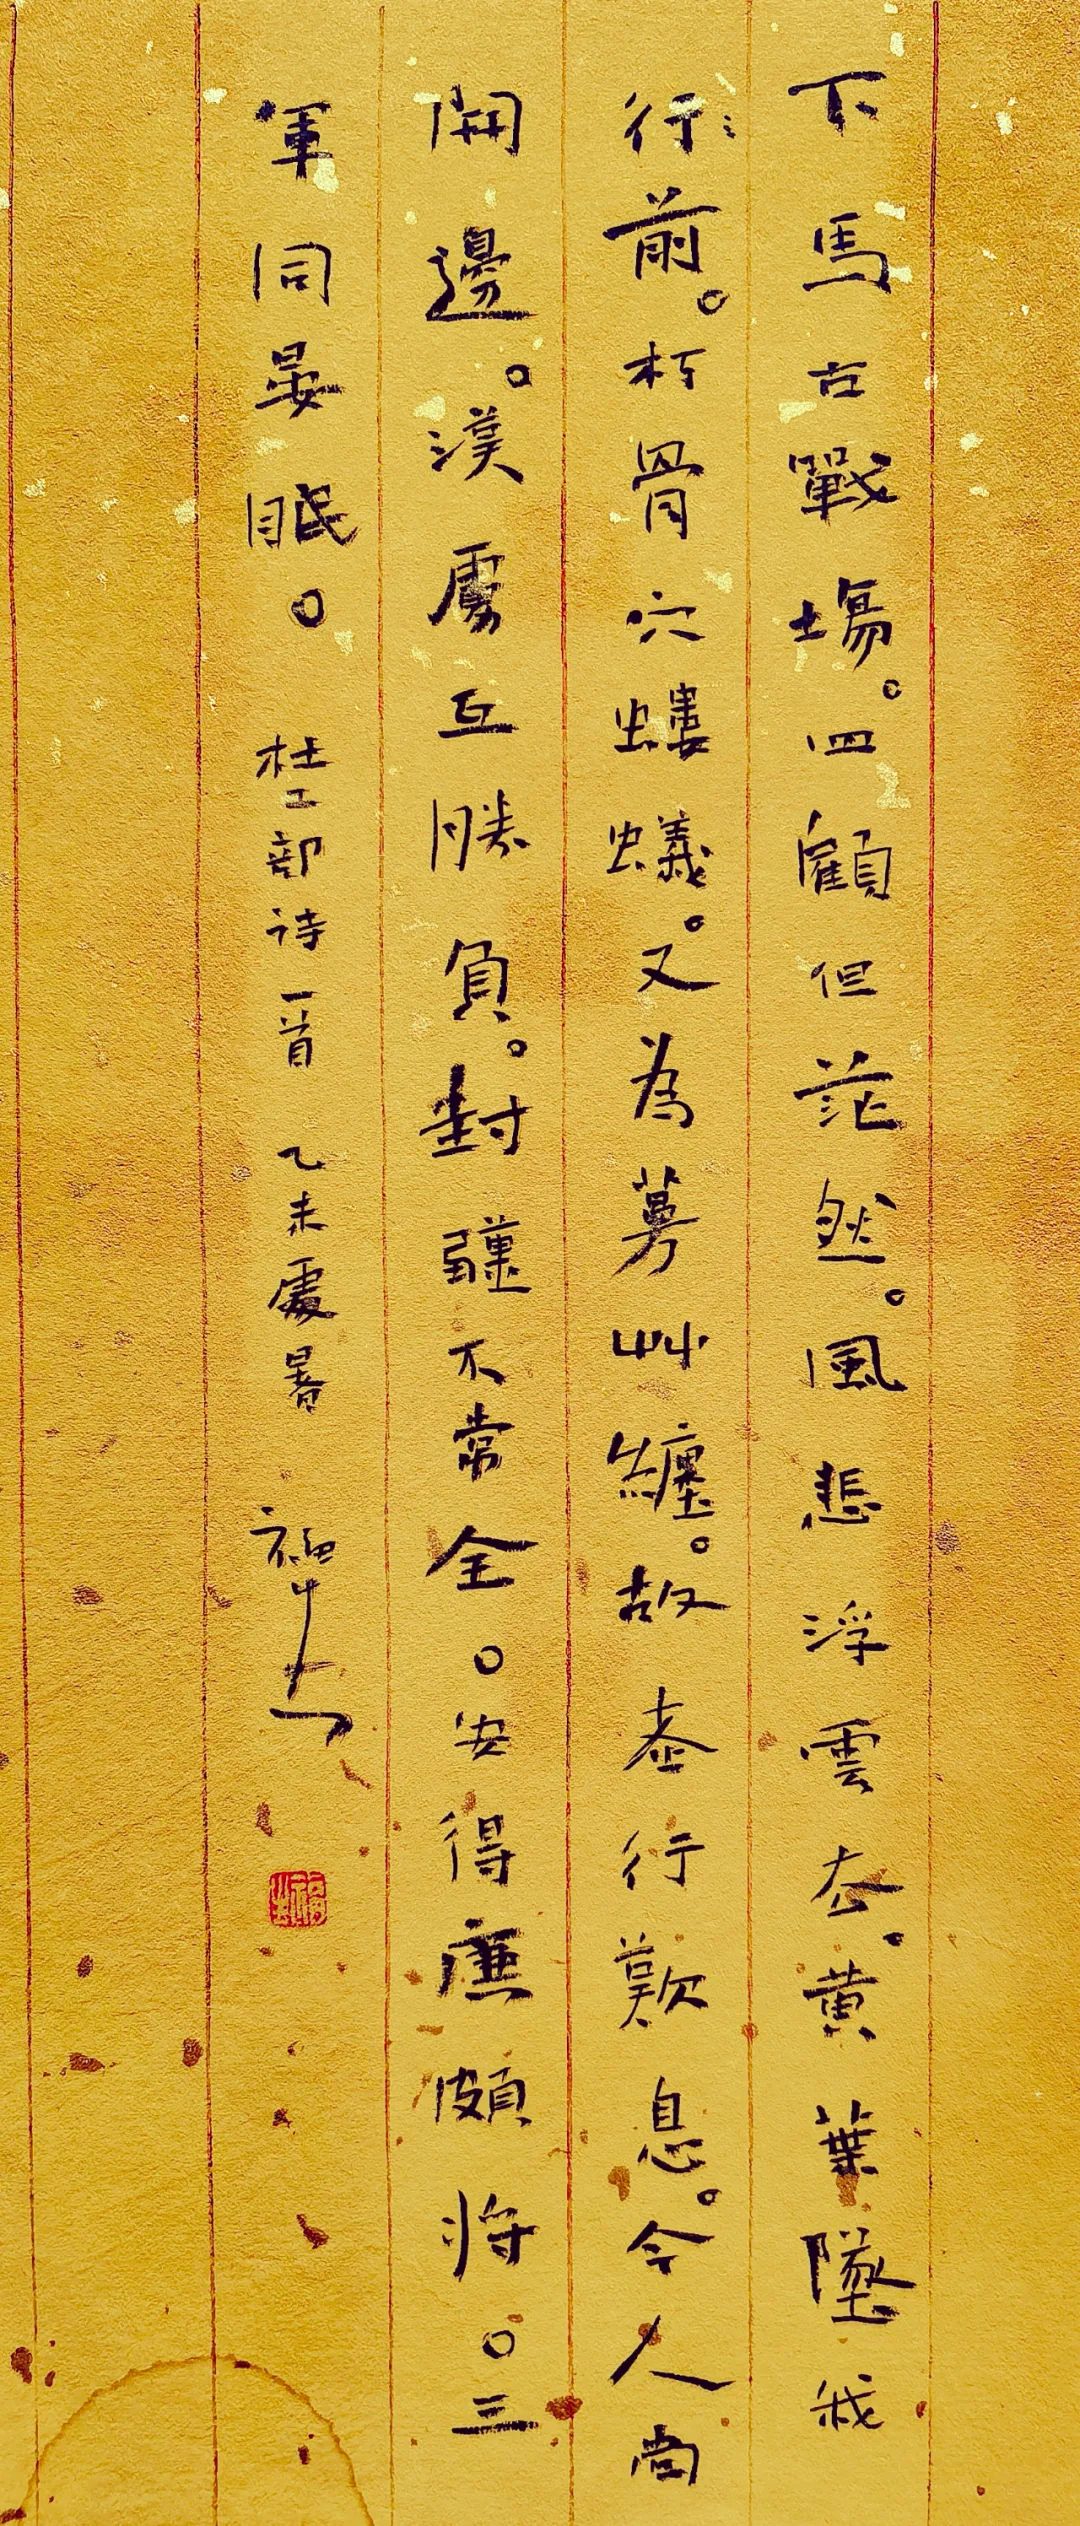 下馬古戰場。四顧但茫然。風悲浮雲去。黄葉墜我
行：前。朽骨穴螻蟻。又為蔓艸纏。故老行歎息。今人尚
開邊。漢虜互勝負。封疆不常全。安得廉頗将。三
軍同晏眠。 杜工部诗一首 乙未處暑